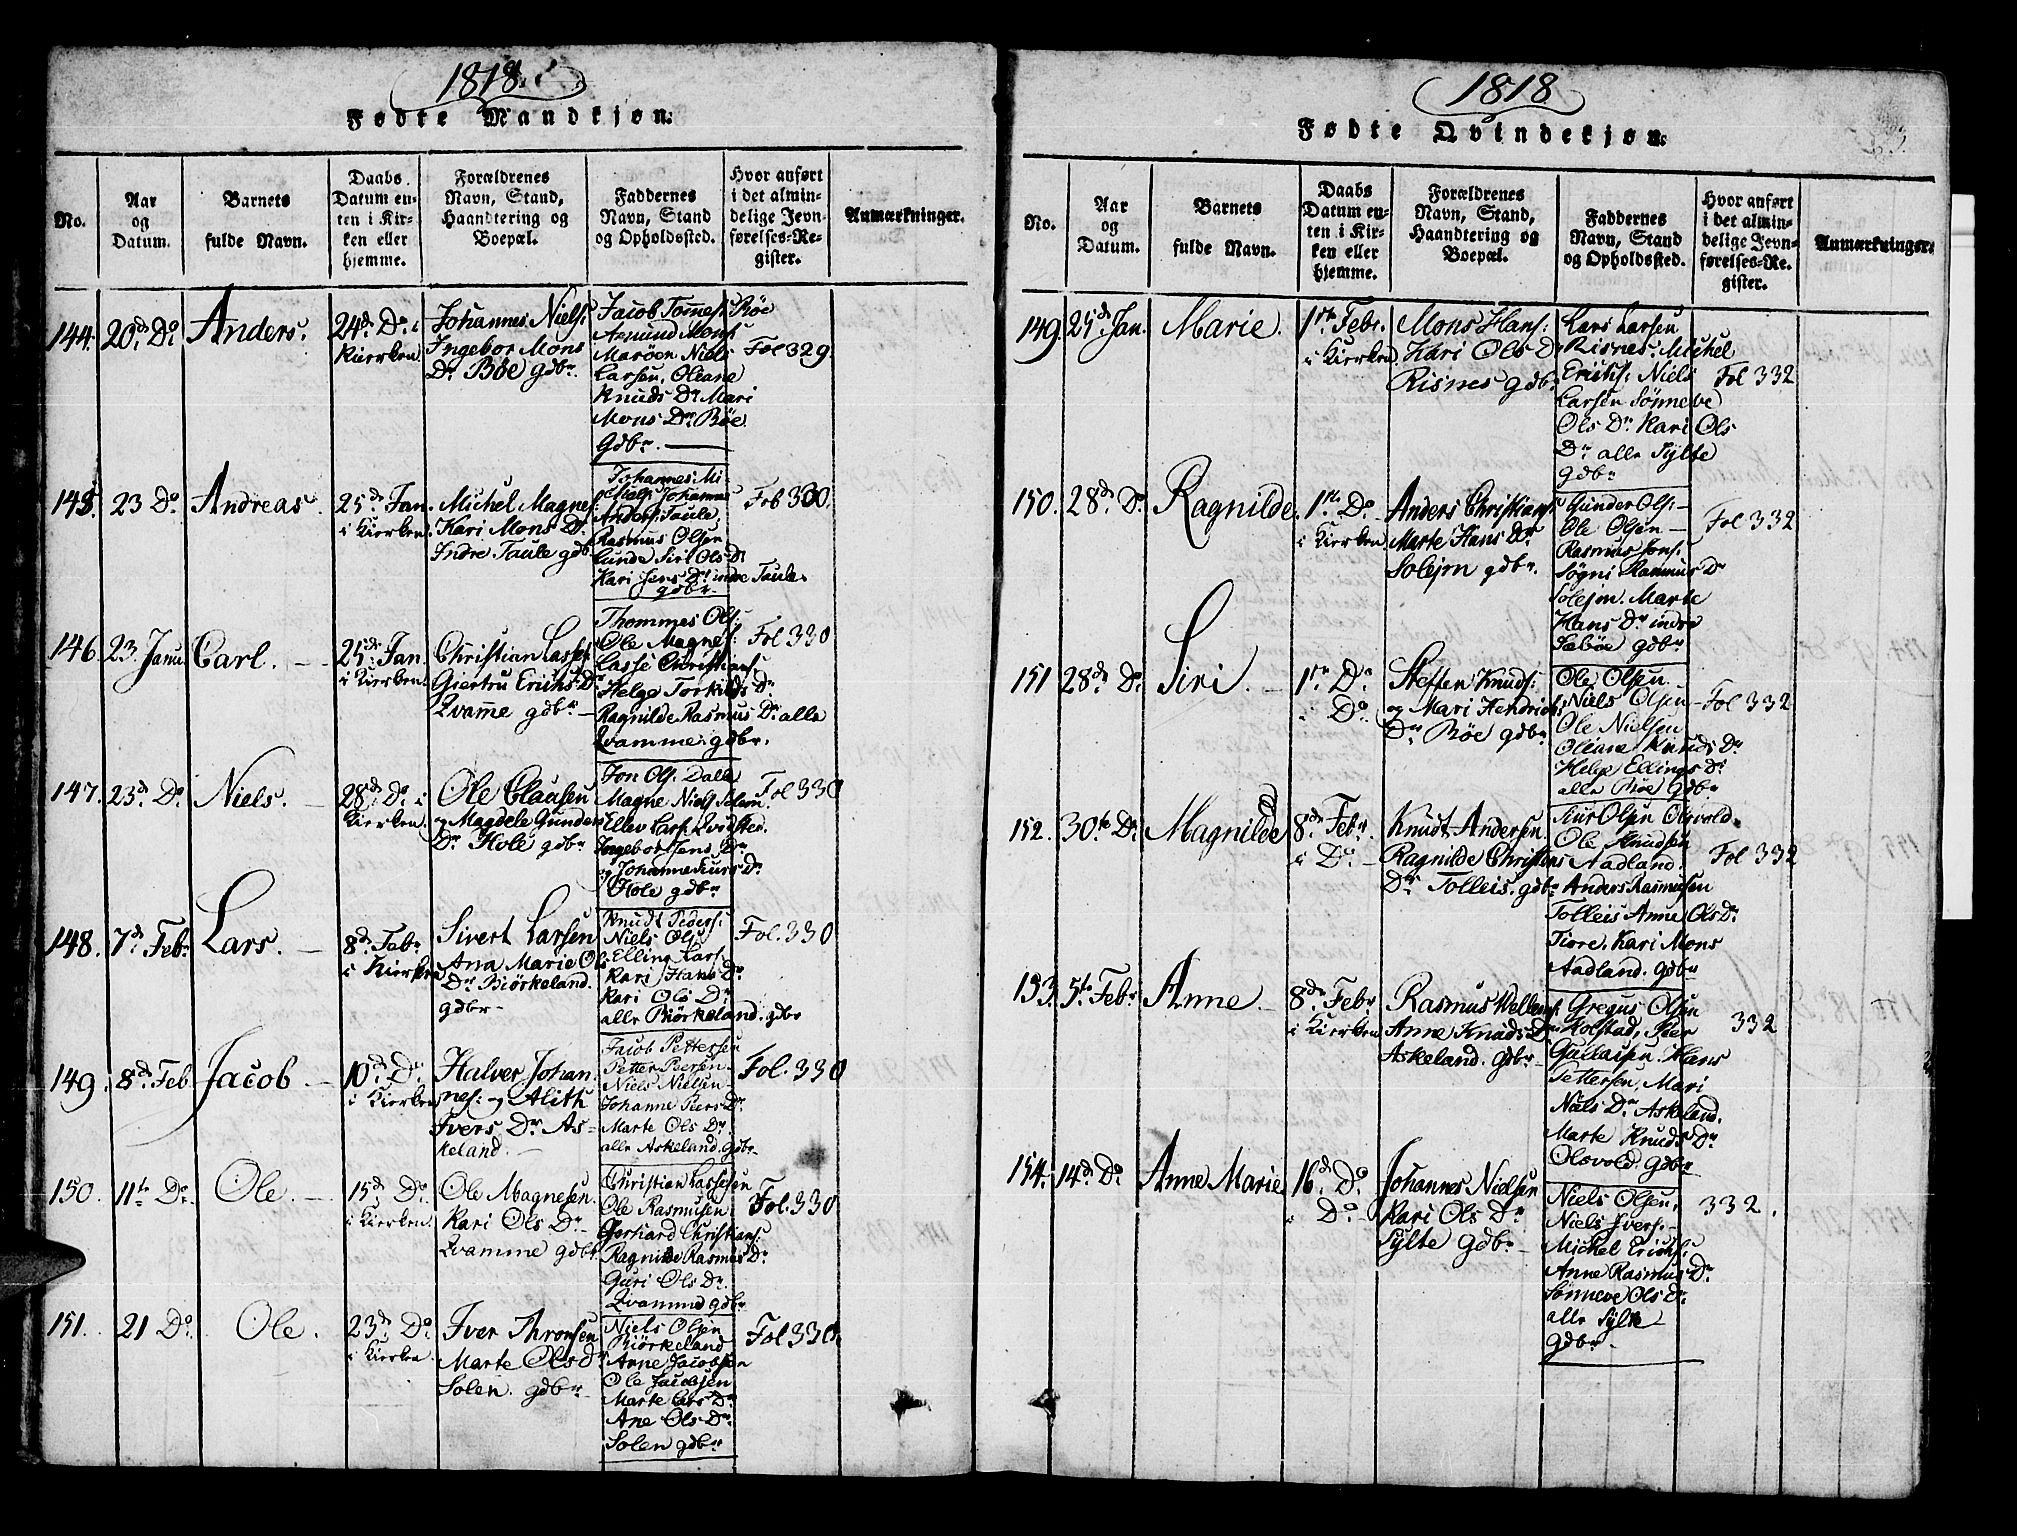 1818.
Fødte Mandkjøn.
No.
Aar
og
Datum.
Barnets
fulde Navn.
Daabs
Datum en-
ten i Kir-
ken eller
hjemme.
Forældrenes
Navn, Stand,
Haandtering og
Boepæl.
Faddernes
Navn, Stand
og Opholdssted.
Hvor anført
i det almin-
delige Jevn-
førelses-Re-
gister.
Anmærkninger.
144. 20de Do. Anders. 24de Do. i
Kierken
Johannes Niels:
Ingebor Mons
Dr Bøe gdbr.
Jacob Tomes: Røe
Amund Mons:
Marøen Niels
Larsen, Oleane
Knuds Dr Mari
Mons Dr Bøe
Gdbr.
Fol 329.
145. 23 Do Andreas. 25de Jan.
i Kierken
Michel Magnes:
Kari Mons Dr
Indre Taule gdb.
Johannes Mi-
Johannes
Anders: Taule,
Rasmus Olsen
Lunde Siri Ols Dr
Kari Jens Dr indre Taule.
gdbr.
Fol 330.
146. 23 Janu. Carl. 25de Jan.
i Kierken.
Christian Lasses:
Giertru Erichs Dr
Qvamme gdbr
Thommes Ols:
Ole Magnes:
Lasse Christians:
Helge Torkilds Dr
Ragnilde Rasmus Dr alle
Qvamme. gdbr.
Fol 330
147. 23de Do Niels. 28de Do i
Kierken.
Ole Clausen
og Magdele Gunders
Dr Hole gdbr
Jon Ols: Dale
Magne Niels Solem.
Ellev Lars: Qvidsted.
Ingebor Jens Dr
og Johanne Siurs Dr
Hole gdbr
Fol 330
148. 7de Febr Lars. 8de Febr
i Kierken
Sivert Larsen
Ana Marie Ols
Dr Biørkeland.
gdbr
Knudt Peders:
Niels Ols:
Elling Lars:
Kari Hans Dr
Kari Ols Dr
alle Biørkeland. gdbr
Fol. 330
149. 8de Feb Jacob 10de Do
i Kierken
Halver Johan
nes: og Alith
Ivers Dr As-
keland.
Jacob Pettersen
Petter Peersen
Niels Nielsen
Johanne Peers Dr
Marte Ols Dr
alle Askeland. gdbr
Fol. 330
150. 11te Do Ole. 15de Do
i Kierken.
Ole Magnesen
Kari Ols Dr
Qvamme gdbr
Christian Lassesen
Ole Rasmusen
Gerhard Christians:
Ragnilde Rasmus Dr
Guri Ols Dr
Qvamme gdbr
Fol. 330
151. 21 Do Ole. 23de Do
i Kierken
Iver Thronsen
Marte Ols Dr
Solen. gdbr
Niels Olsen
Biørkeland
Arne Jacobsen
Ole Jacobsen
Marte Lars Dr
Ane Ols Dr
Solen gdbr
Fol 330.
1818
Fødte Qvindekjøn.
No.
Aar
og
Datum.
Barnets
fulde Navn.
Daabs
Datum en-
ten i Kir-
ken eller
hjemme.
Forældrenes
Navn, Stand,
Haandtering og
Boepæl.
Faddernes
Navn, Stand
og Opholdssted.
Hvor anført
i det almin-
delige Jevn-
førelses-Re-
gister.
Anmærkninger.
149. 25de Jan. Marie. 1ste Febr.
i Kierken.
Mons Hans:
Kari Ols Dr
Risnes gdbr
Lars Larsen
Risnes. Michel
Erichs: Niels
Larsen Sønneve
Ols Dr Kari Ols
Dr alle Sylte
gdbr
Fol 332
150. 28de Do Ragnilde. 1ste Do
i Kierken.
Anders Christians:
Marte Hans Dr
Solejm gdbr.
Gunder Ols:
Ole Olsen
Rasmus Jons:
Søgni Rasmus Dr
Solejm. Marte
Hans Dr indre
Sæbøe gdbr
Fol 332
151 28de Do Siri. 1ste Do
i Do.
Steffen Knuds:
og Mari Hendrichs
Dr Bøe gdbr
Ole Olsen
Niels Olsen
Ole Nielsen
Oleane Knuds Dr
Helge Ellings Dr
alle Bøe Gdbr
Fol 332
152. 30te Do Magnilde 8de Febr.
i Do
Knudt Andersen
Ragnilde Christens
Dr Tolleis. gdbr
Siur Olsen Olsvold.
Ole Knudsen
Aadland.
Anders Rasmusen
Tolleis Anne Ols Dr
Tiore. Kari Mons
Aadland. gdbr
Fol 332
153. 5te Febr Anne 8de Febr
i Kierken
Rasmus
Anne Knuds Dr
Askeland. Gdbr
Gregus Olsen
Kolstad, Peer
Hans
Pettersen, Mari
Niels Dr Askeland.
Marte Knuds Dr
Olsvold. Gdbr
332
154. 14de Do Anne Marie 16de Do
i Do
Johannes Nielsen
Kari Ols Dr
Sylte Gdbr
Niels Olsen,
Niels Ivers:
Michel Erichs:
Anne Rasmus Dr
Sønneve Ols Dr
alle Sylte
Gdbr.
332.